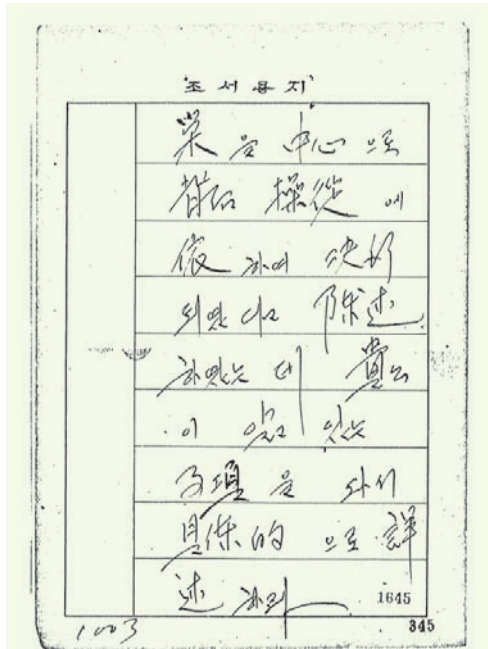 조서용지
榮을 中心으로
背后 操從에
依하여 決行
되였다고 陳述
하였는데 貴公
이 알고 있는
事項을 다시
具体的으로 詳
述하라
1645
1003
345